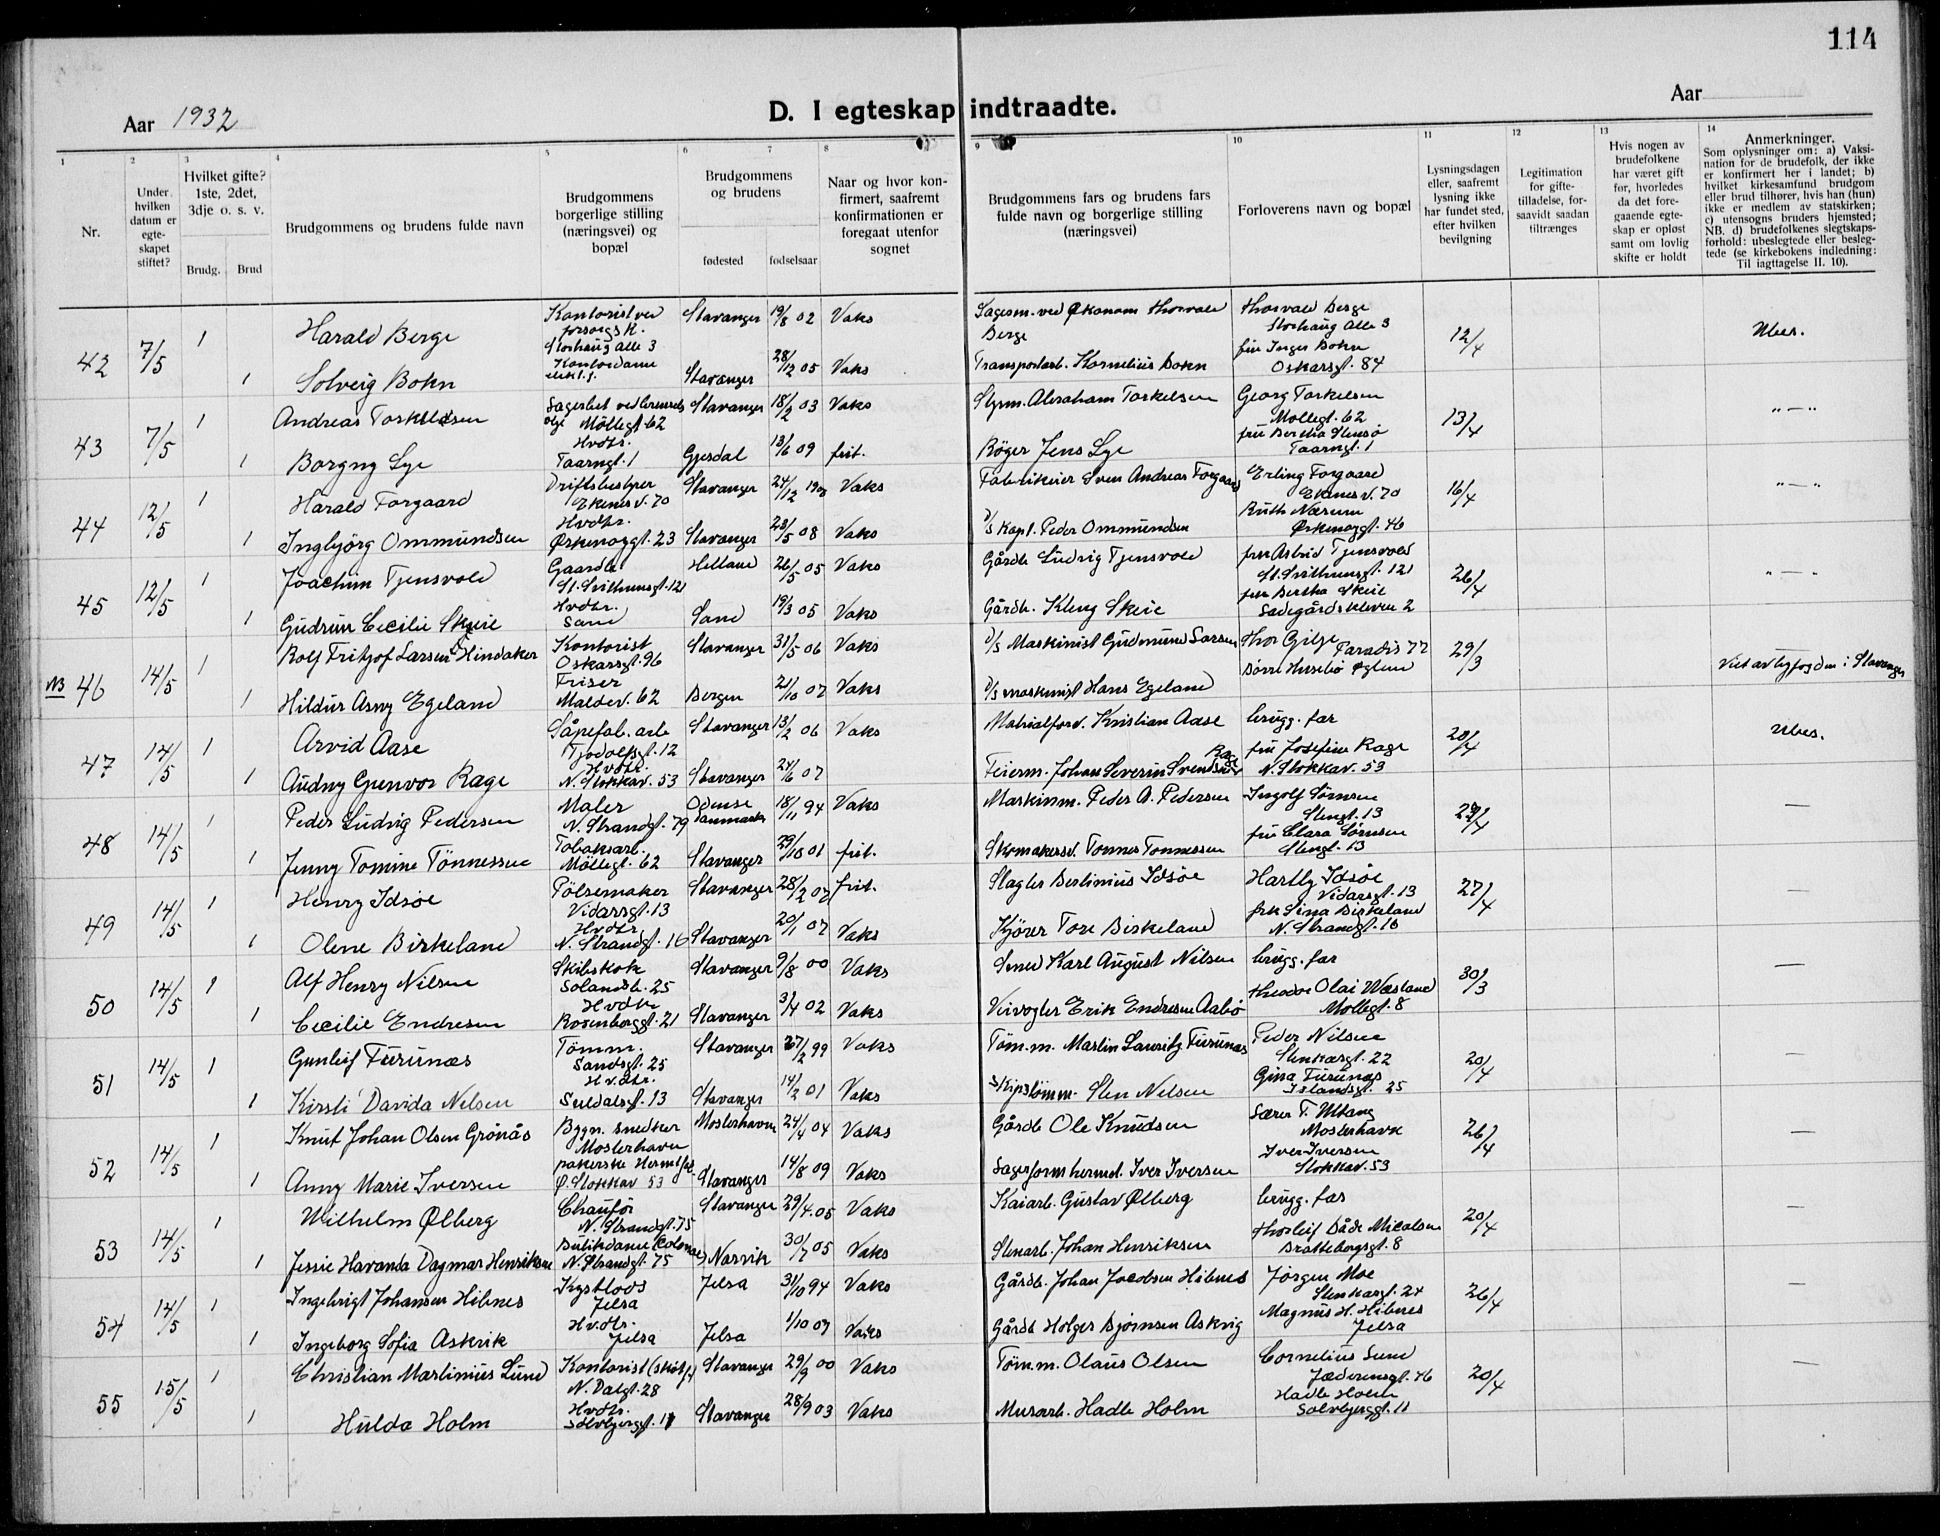 114
Aar 1932
D. I egteskap indtraadte.
Aar
1 2 3 4 5 6 7 8 9 10 11 12 13 14
Nr.
Under hvilken datum er egte-skapet stiftet?
Hvilket gifte? 1ste, 2det, 3dje o. s. v.
Brudg. Brud
Brudgommens og brudens fulde navn
Brudgommens borgerlige stilling (næringsvei) og bopæl
Brudgommens og brudens
fødested fødselsaar
Naar og hvor kon-firmert, saafremt konfirmationen er foregaat utenfor sognet
Brudgommens fars og brudens fars fulde navn og borgerlige stilling (næringsvei)
Forloverens navn og bopæl
Lysningsdagen eller, saafremt lysning ikke har fundet sted, efter hvilken bevilgning
Legitimation for gifte-tilladelse, for-saavidt saadan tiltrænges
Hvis nogen av brudefolkene har været gift før, hvorledes da det fore-gaaende egte-skap er opløst samt om lovlig skifte er holdt
Anmerkninger.
Som oplysninger om: a) Vaksi-nation for de brudefolk, der ikke er konfirmert her i landet; b) hvilket kirkesamfund brudgom eller brud tilhører, hvis han (hun) ikke er medlem av statskirken; c) utensogns bruders hjemsted; NB. d) brudefolkenes slegtskaps-forhold: ubeslegtede eller besleg-tede (se kirkebokens indledning: Til iagttagelse II. 10).
42 7/5 1 Harald Berge Kontorist ved forsørgsk. Storhaug Alle 3 Stavanger 19/8 02 Vaks Sagesm. ved Økonom Thorvald Berge Thorvald Berge Storhaug Alle 3 12/4 Ubes.
1 Solveig Bokn Kontordame Stavanger 28/12 05 Vaks Transportarb. Kornelius Bokn fru Inger Bokn Oskarsgt. 84
43 7/5 1 Andreas Torkildsen Møllegt. 62 Stavanger 18/2 03 Vaks Styrm. Abraham Torkelsen Georg Torkelsen Møllegt. 62 13/4 " — "
1 Borgny Lye Hvdtr. Taarngt. 1 Gjesdal 13/6 09 frit. Røger Jens Lye fru Bertha Stensø Taarngt. 1
44 12/5 1 Harald Forgaard Driftsbestyrer Ekenesv. 70 Stavanger 24/12 1903 Vaks Fabrikeier Sven Andreas Forgaard Erling Forgaard Ekenesv. 70 16/4 " — "
1 Ingbjørg Ommundsen Hvdtr. Ørkenøygt. 23 Stavanger 23/5 08 Vaks D/S Kapt. Peder Ommundsen Ruth Nærum Ørkenøygt. 46
45 12/5 1 Joachim Tjensvold Gaardb. St. Svithunsgt. 121 Hetland 26/5 05 Vaks Gårdb. Ludvig Tjensvold fru Astrid Tjensvold St. Svithunsgt. 121 26/4 " — "
1 Gudrun Cecilie Skeie Hvdtr. Sand Sand 19/3 05 Vaks Gårdb. Kleng Skeie fru Bertha Skeie Ladegårdskleven 2
NB 46 14/5 1 Rolf Fritjof Larsen Hindaker Kontorist Oskarsgt. 96 Stavanger 31/5 06 Vaks D/S Maskinist Gudmund Larsen Thor Gilje Paradis 77 29/3 Viet av byfogden i Stavanger
1 Hildur Asny Egeland Friser Maldev. 62 Bergen 21/10 07 Vaks D/S maskinist Hans Egeland
47 14/5 1 Arvid Aase Såpefab. arb Tjodolfsgt. 12 Stavanger 13/2 06 Vaks Matrialforv. Kristian Aase brugg. far 20/4 Ubes.
1 Audny Gunvor Rage Hvdtr. N. Stokkav. 53 Stavanger 24/6 07 Feierm. Johan Severin Svendsen Rage fru Josefine Rage N. Stokkav. 53
48 14/5 1 Peder Ludvig Pedersen Maler N. Strandgt. 79 Odense Danmark 18/11 94 Vaks Maskinm. Peder A. Pedersen Ingolf Sørnsen Stengt. 13 27/4 —
1 Jenny Tomine Tönnessen Tobaksarb. Møllegt. 62 Stavanger 29/10 01 frit. Skomakersv. Tønnes Tønnessen fru Clara Sørnsen Stengt. 13
49 14/5 1 Henry Idsøe Pølsemaker Vidarsgt. 13 Stavanger 28/2 07 frit. Slagter Bertinius Idsøe Hartly Idsøe Vidarsgt. 13 27/4 —
1 Olene Birkeland Hvdtr. N. Strandgt. 16 Stavanger 20/1 07 Vaks Kjører Tore Birkeland frk Sina Birkeland N. Strandgt. 16
50 14/5 1 Alf Henry Nilsen Skibskok 25 Stavanger 9/8 00 Vaks Smed Karl August Nilsen brugg. far 30/3 —
1 Cecilie Endresen Hvdtr Rosenberggt. 21 Stavanger 3/4 02 Vaks Veivogter Erik Endresen Aabø Theodor Olai Wæstand Møllegt. 8
51 14/5 1 Gunleif Furunæs Tømm. Sandsgt. 25 Stavanger 27/2 99 Vaks Tøm.m. Martin Lauritz Furunæs Peder Nilsen Stenkargt. 22 20/4 —
1 Kirsti Davida Nelsen Hvdtr. Suldalsgt. 13 Stavanger 14/2 01 Vaks Skipstømm. Sten Nelsen Gina Furunæs Islandsgt. 25
52 14/5 1 Knut Johan Olsen Grönås Bygn. snedker Mosterhavn Mosterhavn 24/4 04 Vaks Gårdb Ole Knudsen T. Utkang Mosterhavn 26/4 —
1 Anny Marie Iversen pakerske Hermtfab. Ø. Stokkav 53 Stavanger 14/8 09 Vaks Lagerform hermet. Iver Iversen Iver Iversen Stokkav. 53
53 14/5 1 Wilhelm Ølberg Chaufør N. Strandgt. 75 Stavanger 29/4 05 Vaks Kaiarb. Gustav Ølberg brugg. far 20/4 —
1 Jessie Havanda Dagmar Henriksen Butikdame (Colonial) N. Strandgt. 75 Narvik 30/7 05 Vaks Stenarb. Johan Henriksen Thorleif Dåde Micalsen Brattebergsgt. 8
54 14/5 1 Ingebrigt Johansen Hibnes Kystlods Jelsa Jelsa 31/10 94 Vaks Gårdb. Johan Jacobsen Hibnes Jørgen Moe Stenkargt. 24 26/4 —
1 Ingeborg Sofia Askvik Hvdtr. Jelsa Jelsa 1/10 07 Vaks Gårdb Holger Bjørnsen Askvig Magnus H. Hibnes Jelsa
55 15/5 1 Christian Martinius Lund Kontorist (skotf.) N. Dalgt. 28 Stavanger 29/9 00 Vaks Tøm.m. Olaus Olsen Cornelius Lund Jæderensgt. 46 20/4 —
1 Hulda Holm Hvdtr. Sølvbjerggt. 11 Stavanger 28/9 03 Vaks Murarb. Hadle Holm Hadle Holm Sølvbjerggt. 11